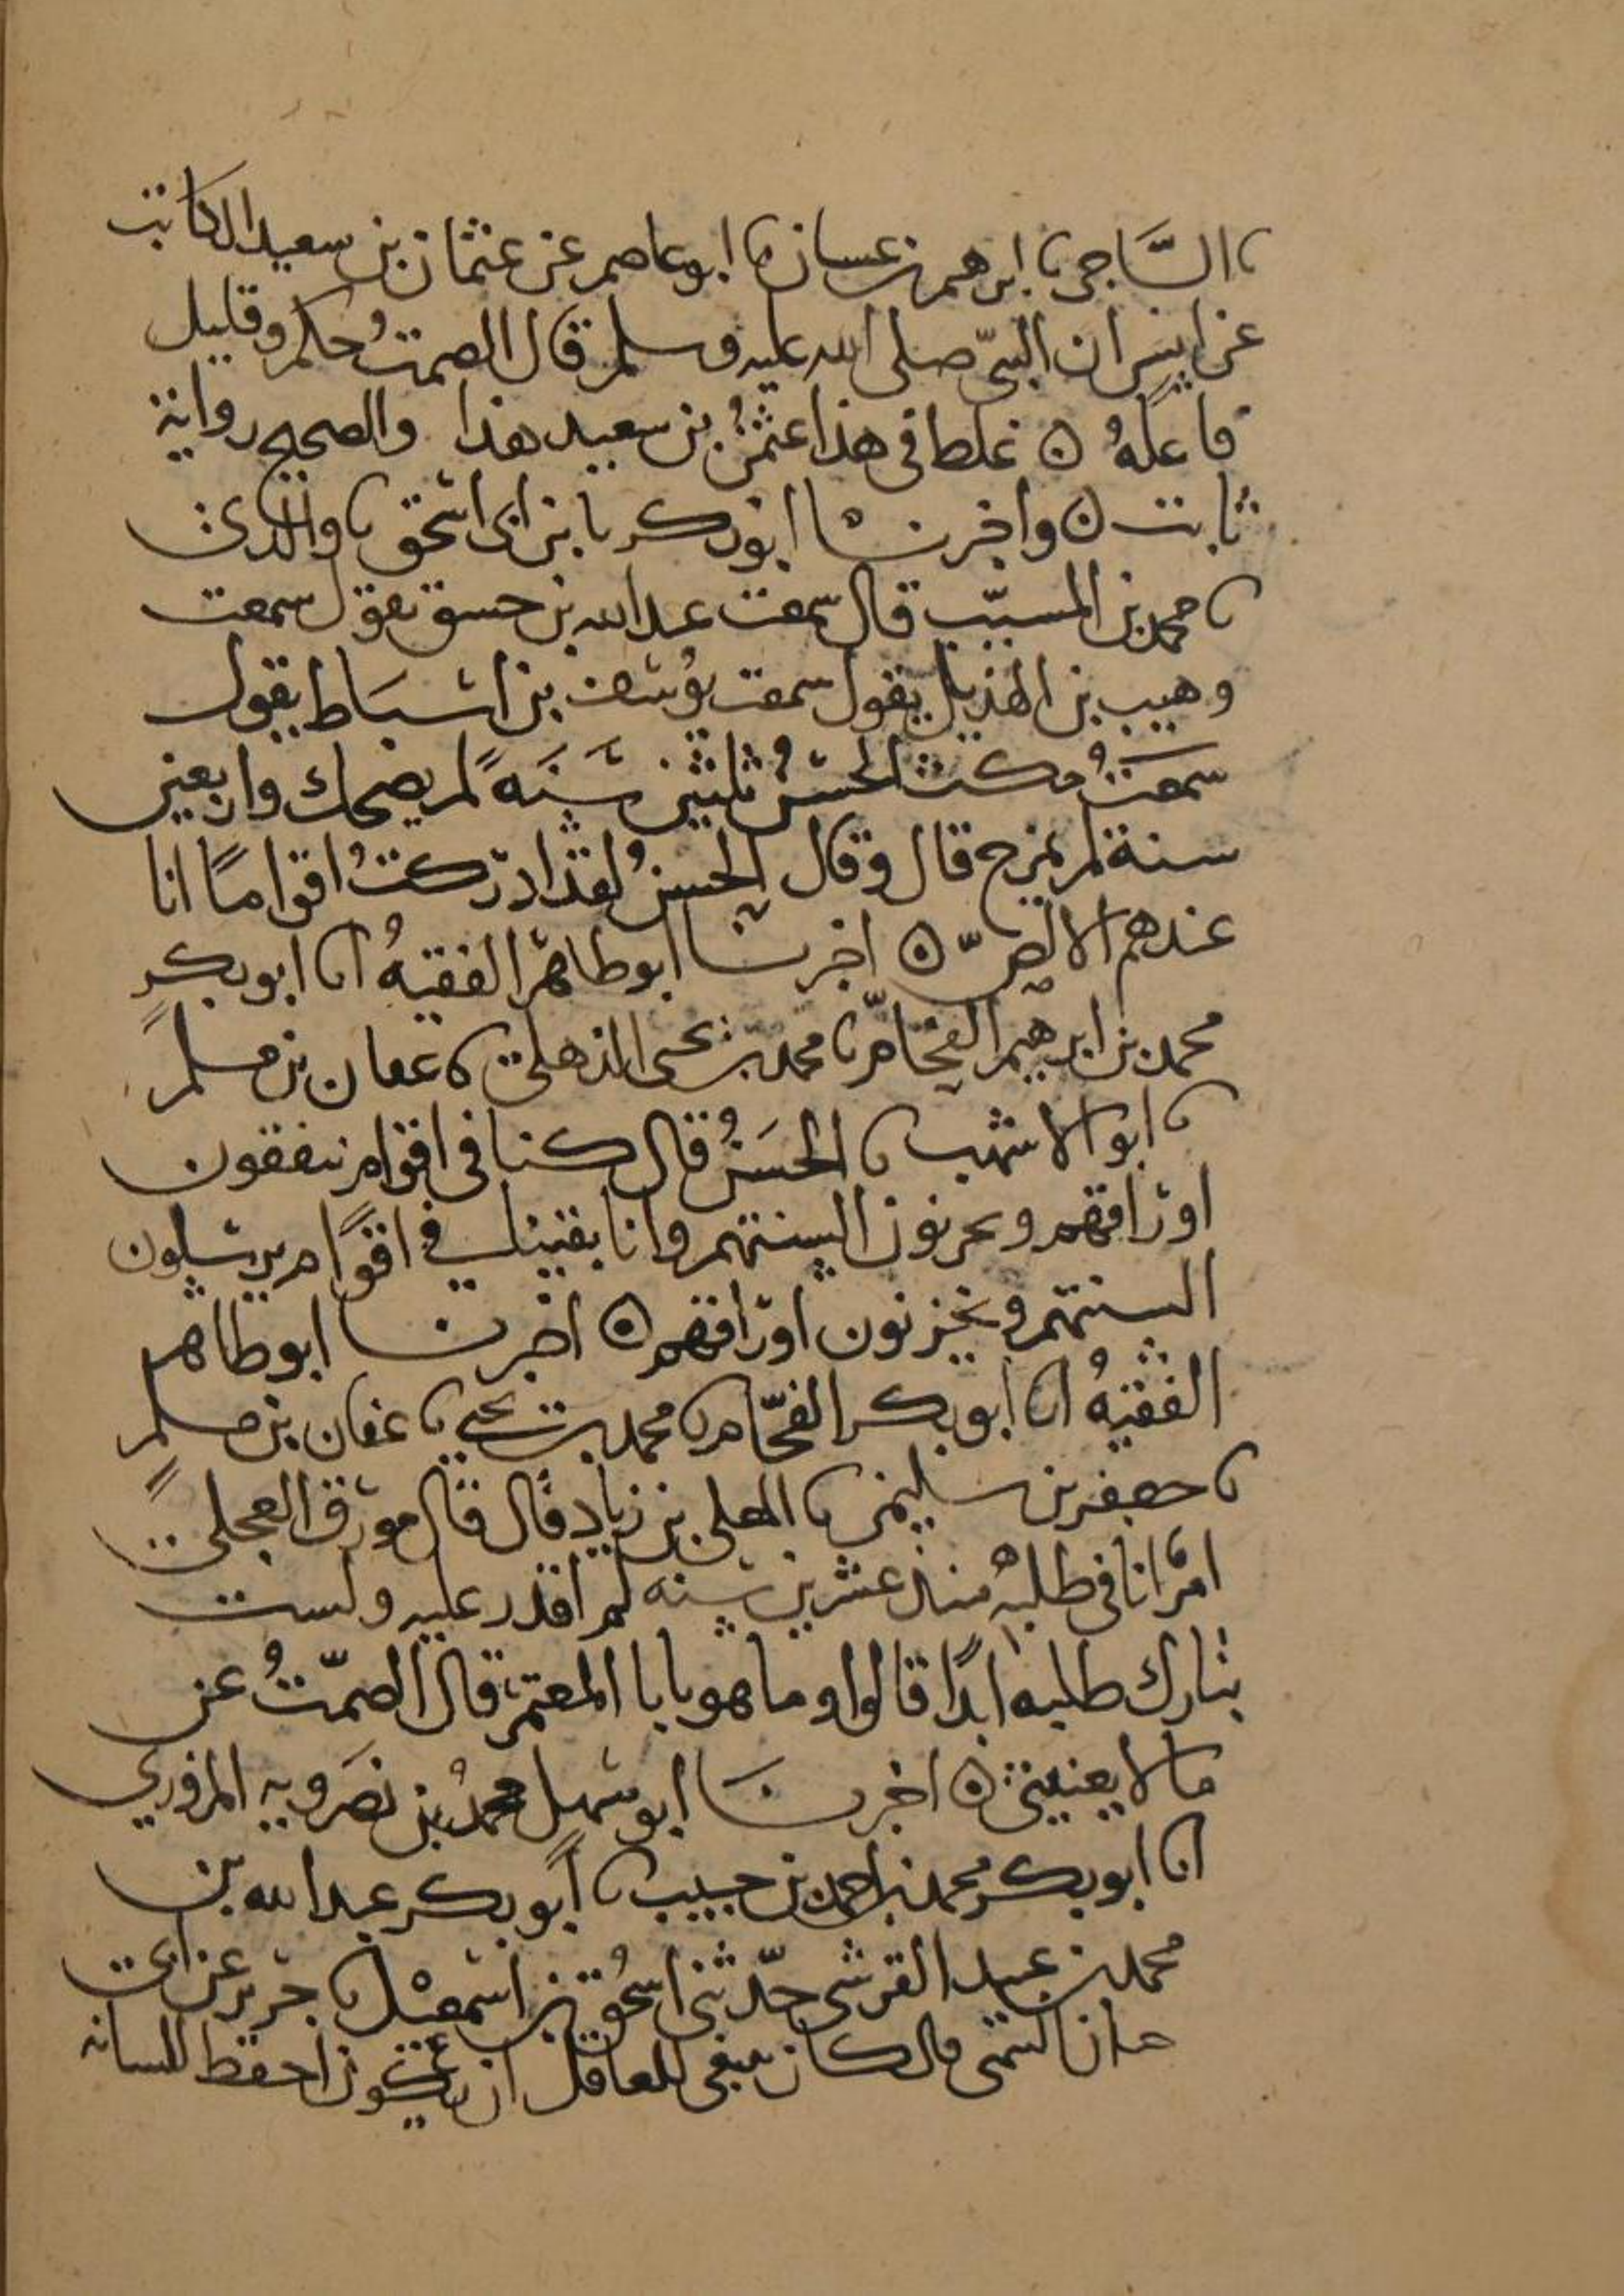 ثنا الساجي ثنا ابرهيم بن غسان ثنا ابو عاصم عن عثمان بن سعيد الكاتب
عن انس ان النبي صلى الله عليه وسلم قال الصمتُ حكم وقليل
فاعلهُ ٥ غلط في هذا عثمنُ بن سعيد هذا والصحيح رواية
ثابت ٥ واخبرنا ابو زكريا بن ابي اسحق ثنا والدي
ثنا محمد بن المسيب قال سمعت عبد الله بن خبيق يقول سمعت
وهيب بن الهذيل يقول سمعت يوسف بن اسباط يقول
سمعتُ مكث الحسنُ ثلثين سَنَةً لم يضحك واربعين
سنة لم يمزح قال وقال الحسنُ لقد ادركتُ اقواماً انا
عندهم الا لصّ ٥ اخبرنا ابو طاهر الفقيهُ انا ابو بكرٍ
محمد بن ابرهيم الفحّام ثنا محمد بن يحيى الذهلي ثنا عفان بن مسلم
ثنا ابو الاشهب ثنا الحسَنُ قال كنا في اقوام ينفقون
اوراقهم ويخزنون السنتهم وانا بقينا في اقوام يرسلون
السنتهم ويخزنون اوراقهم ٥ اخبرنا ابو طاهر
الفقيهُ انا ابو بكر الفحّام ثنا محمد بن يحيى ثنا عفان بن مسلمٍ
ثنا جعفر بن سليمن ثنا المعلى بن زيادٍ قال قال مورق العجلي
امرٌ انا في طلبهِ منذ عشرين سنه لم اقدر عليه ولست
بتارك طلبه ابدًا قالوا وما هو يابا المعتمر قال الصمّتُ عن
ما لا يعنيني ٥ اخبرنَا ابو سهل محمدُ بن نصَرويه المروزي
انا ابو بكر محمد بن احمد بن حبيب ثنا ابو بكر عبد الله بن
محمد بن عبيد القرشي حدّثني اسحُق بن اسمعيْل ثنا جرير عن ابي
حيان التيمي قال كان ينبغي للعاقل ان يكون احفظ للسانه